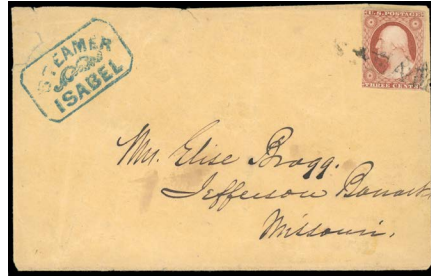 STEAMER
ISABEL
U.S. POSTAGE
THREE CENTS
Mr. Elise Bragg.
Jefferson Barracks
Missouri.